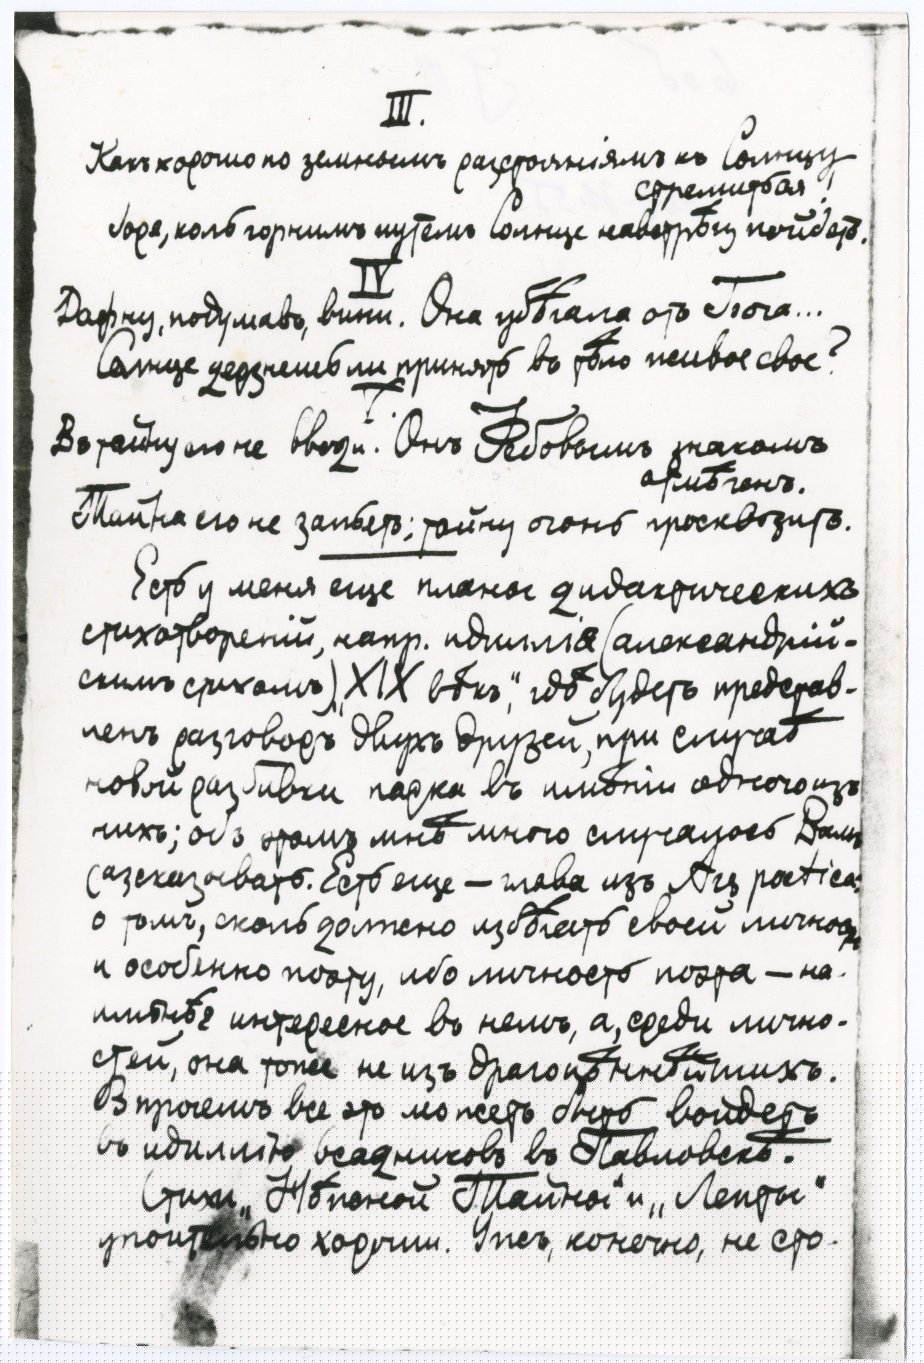 III.
Какъ хорошо по земнымъ разстояніямъ къ Солнцу
стремиться!
Горе, коль горнимъ путемъ Солнце навстрѣчу пойдетъ.
IV
Дафну, подумавъ, вини. Она убѣгала отъ Бога...
Солнце дерзнешь ли принять въ тѣло живое свое?
V.
Въ тайну его не вводи. Онъ Фебовымъ знакомъ
отмѣченъ.
Тайна его не запьетъ; тайну огонь просквозитъ.
Есть у меня еще планы дидактическихъ
стихотвореній, напр. идиллія (александрій-
скимъ стихомъ) „XIX вѣкъ“, гдѣ будетъ представ-
ленъ разговоръ двухъ друзей, при случаѣ
новой разбивки парка въ имѣніи одного изъ
нихъ; объ этомъ мнѣ много случалось Вамъ
разсказывать. Есть еще — глава изъ Ars poetica:
о томъ, сколь должно избѣгать своей личности
и особенно поэту, ибо личность поэта — на-
имѣнѣе интересное въ немъ, а, среди лично-
стей, она тоже не изъ драгоцѣннѣйшихъ.
Впрочемъ все это можетъ быть войдетъ
въ идиллію всадниковъ въ Павловскѣ.
Стихи „Нѣжной Тайны“ и „Лепты“
упоительно хороши. Ужъ, конечно, не сто-